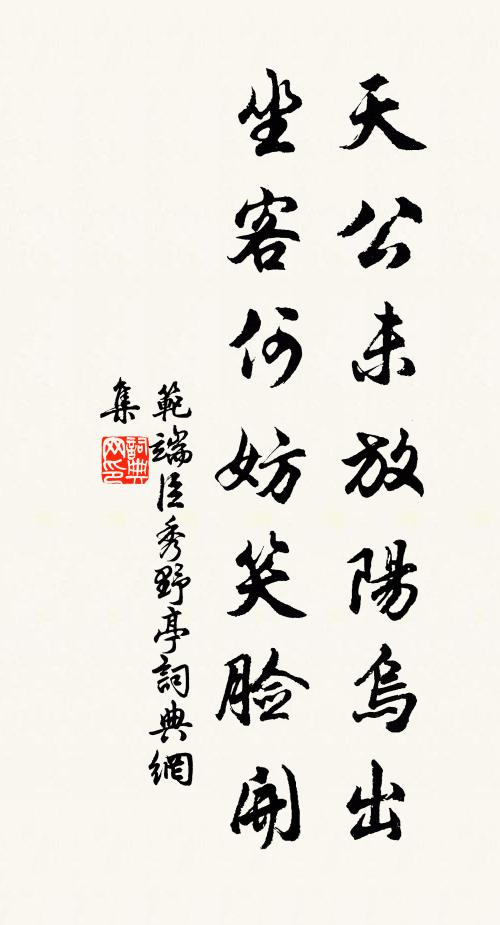 天公未放陽烏出
坐客何妨笑臉開
範端臣秀野亭詞典網
集
詞典網印